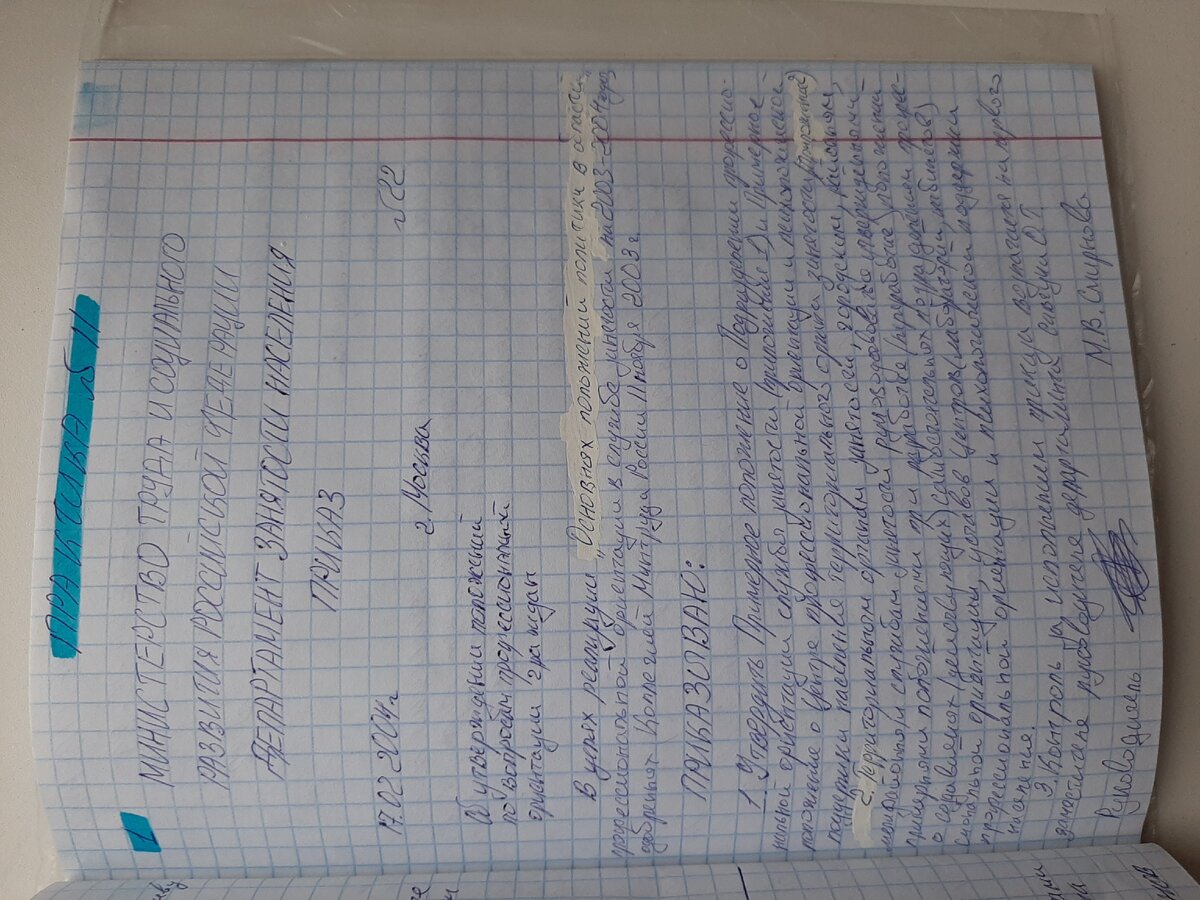 ПРАКТИКА № 11
1
МИНИСТЕРСТВО ТРУДА И СОЦИАЛЬНОГО
РАЗВИТИЯ РОССИЙСКОЙ ФЕДЕРАЦИИ
ДЕПАРТАМЕНТ ЗАНЯТОСТИ НАСЕЛЕНИЯ.
ПРИКАЗ
17.02.2004г. №22
г. Москва
Об утверждении положений
по вопросам профессиональной
ориентации граждан
В целях реализации „Основных положений политики в области
профессиональной ориентации в служба занятости на 2003-2004 годы
одобренных Коллегией Минтруда России 11 ноября 2003г
ПРИКАЗЫВАЮ:
1. Утвердить Примерное положение о Подразделении профессио-
нальной ориентации службы занятости (приложение 1) и Примерное
положение о Центре профессиональной ориентации и психологической
поддержки население территориального органа занятости (приложение 2)
2. Территориальном органам занятости городским, районным,
межрайонным службам занятости руководствоваться утвержденными
примерными положениями при разработке
о соравлениях самостоятельных подразделений профес-
сиональной ориентации, уставов центров (лабораторий, кабинетов)
профессиональной ориентации и психологической поддержки
населения
3. Контроль за исполнением приказа возлагается на первого
заместителя руководителя департамента О.Т
Руководитель М.В. Смирнова